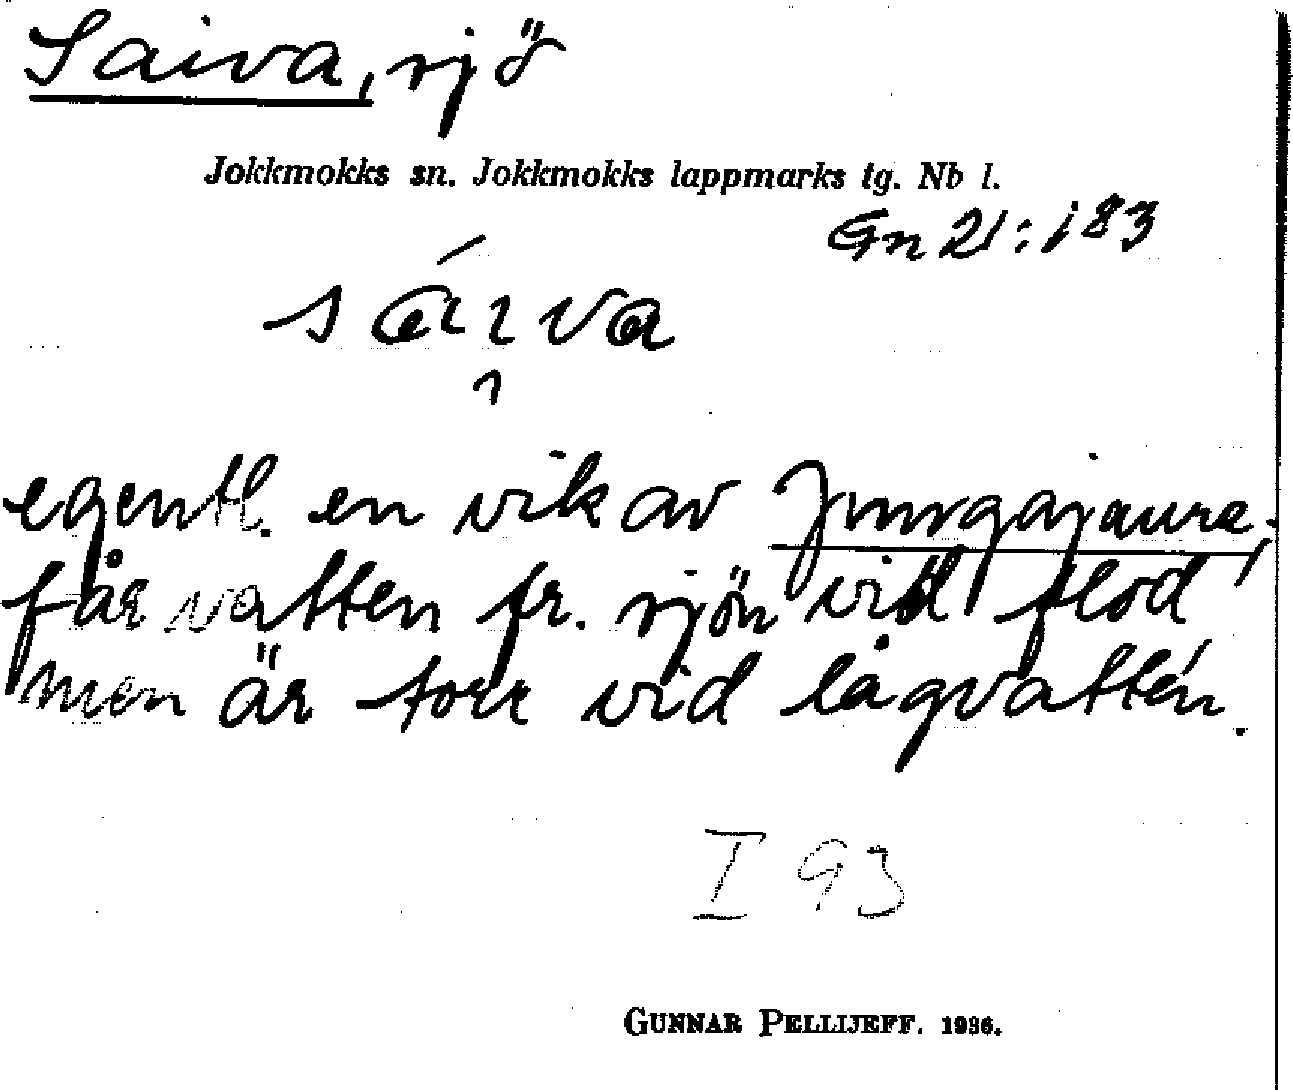 Saiva, sjö
Jokkmokks sn. Jokkmokks lappmarks tg. Nb l.
Gn 21:183
sáiva
egentl. en vik av
får vatten fr. sjön vid flod
men är torr vid lågvatten.
I 93
GUNNAR PELLIJEFF. 1936.